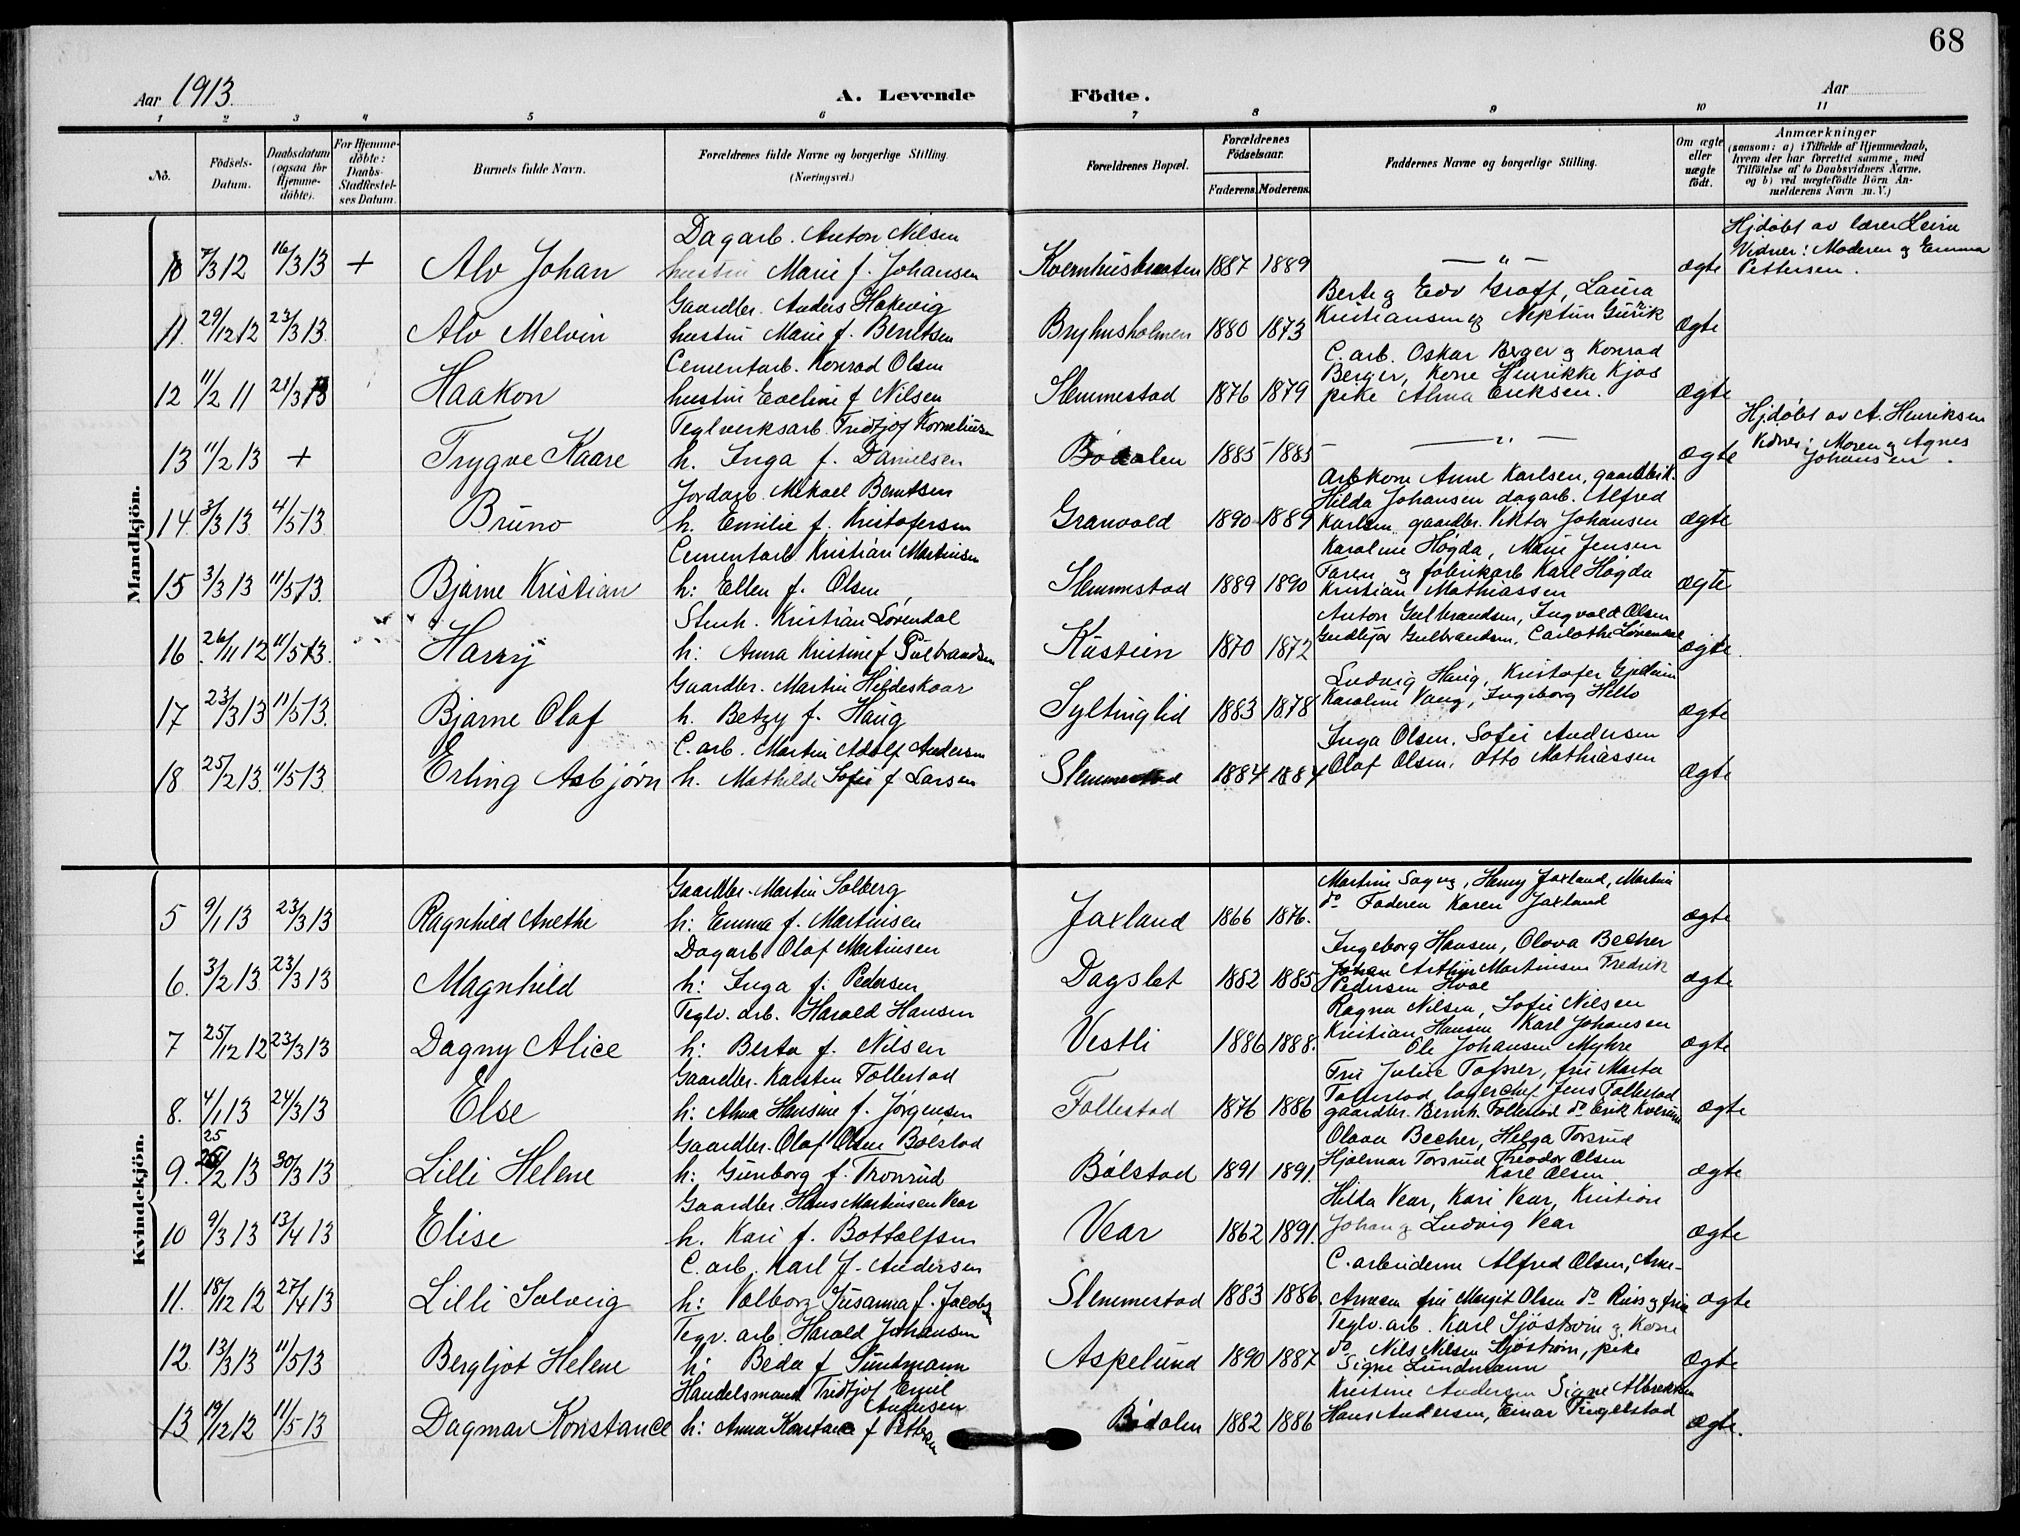 68
Aar 1913.
A. Levende Födte.
Aar
1 2 3 4 5 6 7 8 9 10 11
No. Födsels-Datum. Daabsdatum (ogsaa for Hjemmedöbte). For Hjemmedöbte: Daabs-Stadfæstelses Datum. Barnets fulde Navn. Forældrenes fulde Navne og borgerlige Stilling. (Næringsvei.) Forældrenes Bopæl. Forældrenes Födselsaar. Faderens. Moderens. Faddernes Navne og borgerlige Stilling. Om ægte eller uægte födt. Anmærkninger (saasom: a) i Tilfælde af Hjemmedaab, hvem der har forrettet samme, med Tilföielse af to Daabsvidners Navne, og b) ved uægtefödte Börn Anmelderens Navn m. V.)
Mandkjön.
10 7/3 12 16/3 13 + Alv Johan Dagarb. Anton Nilsen
hustru Marie f. Johansen Kvernhusbraaten 1887 1889 — " — ægte Hjdøbt av lærer Leira
Vidner: Moderen og Emma
Pettersen.
11. 29/12 12 23/3 13. Alv Melvin Gaardbr. Anders Hakavig
hustru Marie f. Berntsen Bryhusholmen 1880 1873 Berte og Edv Graff, Laura
Kristiansen og Neptun Gurik Ægte
12 11/2 11 21/3 13 Haakon Cementarb. Konrad Olsen
hustru Eveline f Nilsen Slemmestad 1876 1879 C. arb. Oskar Berger og Konrad
Berger, Kone Henrikke Kjos
pike Alma Eriksen. ægte
13 11/2 13 + Trygve Kaare Teglverksarb. Fridtjof Kornelius
h. Inga f. Danielsen Bödalen 1885 1885 — " — ægte Hjdøbt av A. Henriksen
Vidner: Moren og Agnes
Johansen.
14. 3/3 13 4/5 13. Bruno Jordarb. Mikael Berntsen
h. Emilie f. Kristofersen Granvold 1890 1889 Arbkone Anne Karlsen, gaardbrk.
Hilda Johansen dagarb. Alfred
Karlsen gaardbr. Viktor Johansen ægte
15 3/3 13 11/5 13. Bjarne Kristian Cementarb. Kristian Martinsen
h: Ellen f. Olsen Slemmestad 1889 1890 Karoline Høgda, Marie Jensen
Faren og fabrikarb Karl Høgda
Kristian Mathiassen ægte
16 26/11 12 11/5 13. Harry Stenh. Kristian Lövendal
h: Anna Kristine f Gulbrandsen Kustein 1870 1872 Anton Gulbrandsen, Ingvald Olsen
Gudbjör Gulbrandsen, Carlothe Lövendal ægte.
17 23/3 13 11/5 13. Bjarne Olaf Gaardbr. Martin Hildeskaar
h. Betzy f. Haug Syltinglid 1883 1878 Ludvig Haug, Kristofer Gjellum
Karoline Vang, Ingeborg Hilto ægte
18 25/2 13. 11/5 13. Erling Asbjørn C. arb. Martin Adolf Andersen
h. Mathilde Sofie f Larsen Slemmestad 1884 1887 Inga Olsen. Sofie Andersen
Olaf Olsen, Otto Mathiassen ægte
Kvindekjön.
5 9/1 13 23/3 13 Ragnhild Anethe Gaardbr. Martin Solberg
h: Emma f. Martinsen Jaxland 1866 1876. Martine Sagvg, Henry Jaxland, Martin
do Faderen Karen Jaxland ægte
6. 3/2 13 23/3 13 Magnhild Dagarb Olaf Martinsen
h: Inga f. Pedersen Dagslet 1882 1885 Ingeborg Hansen, Olava Becher
Johan Arthur Martinsen Fredrik
Pedersen Hval ægte
7 25/12 12 23/3 13 Dagny Alice Teglv. arb. Harald Hansen
h: Berta f. Nilsen Vestli 1886 1888. Ragna Nilsen, Sofie Nilsen
Kristian Hansen Karl Johansen
Ole Johansen Myhre ægte
8. 4/1 13 24/3 13 Else Gaardbr. Karsten Follestad
h: Alma Hansine f. Jørgensen Follestad 1876 1886 Fru Julie Tofner, fru Marta
Follestad, lagerchef. Jens Follestad
gaardbr. Bernh. Follestad do Erik Kverum ægte
9. 25/2 13 30/3 13 Lilli Helene Gaardbr. Olaf Olsen Bølstad
h: Gunborg f. Tronrud Bølstad 1891 1891. Olava Becher, Helga Torsrud
Hjalmar Torsrud Theodor Olsen
Karl Olsen ægte
10 9/3 13 13/4 13 Elise Gaardbr. Hans Martinsen Vear
h. Kari f. Bottolfsen Vear 1862 1891. Hilda Vear, Kari Vear, Kristian
Johan og Ludvig Vear ægte
11. 18/12 12 27/4 13 Lilli Solveig C. arb. Karl J. Andersen
h: Valborg Susanna f. Jacobsen Slemmestad 1883 1886. C. arbeiderne Alfred Olsen, Arne
Arnesen fru Margit Olsen do ægte
12 13/3 13 11/5 13 Bergljot Helene Tegv. arb. Harald Johansen
h: Beda f Sundmann Aspelund 1890 1887 Teglv. arb. Karl Sjöström og Kone
do. Nils Nilsen Sjöström, pike
Signe Lundmann Ægte
13 19/12 12 11/5 13 Dagmar Konstance Handelsmand Fridtjof Emil
Andersen
h: Anna Konstance f Pettersen Bødalen 1882 1886 Kristine Andersen Signe Albrektsen
Hans Andersen, Einar Tingelstad Ægte.